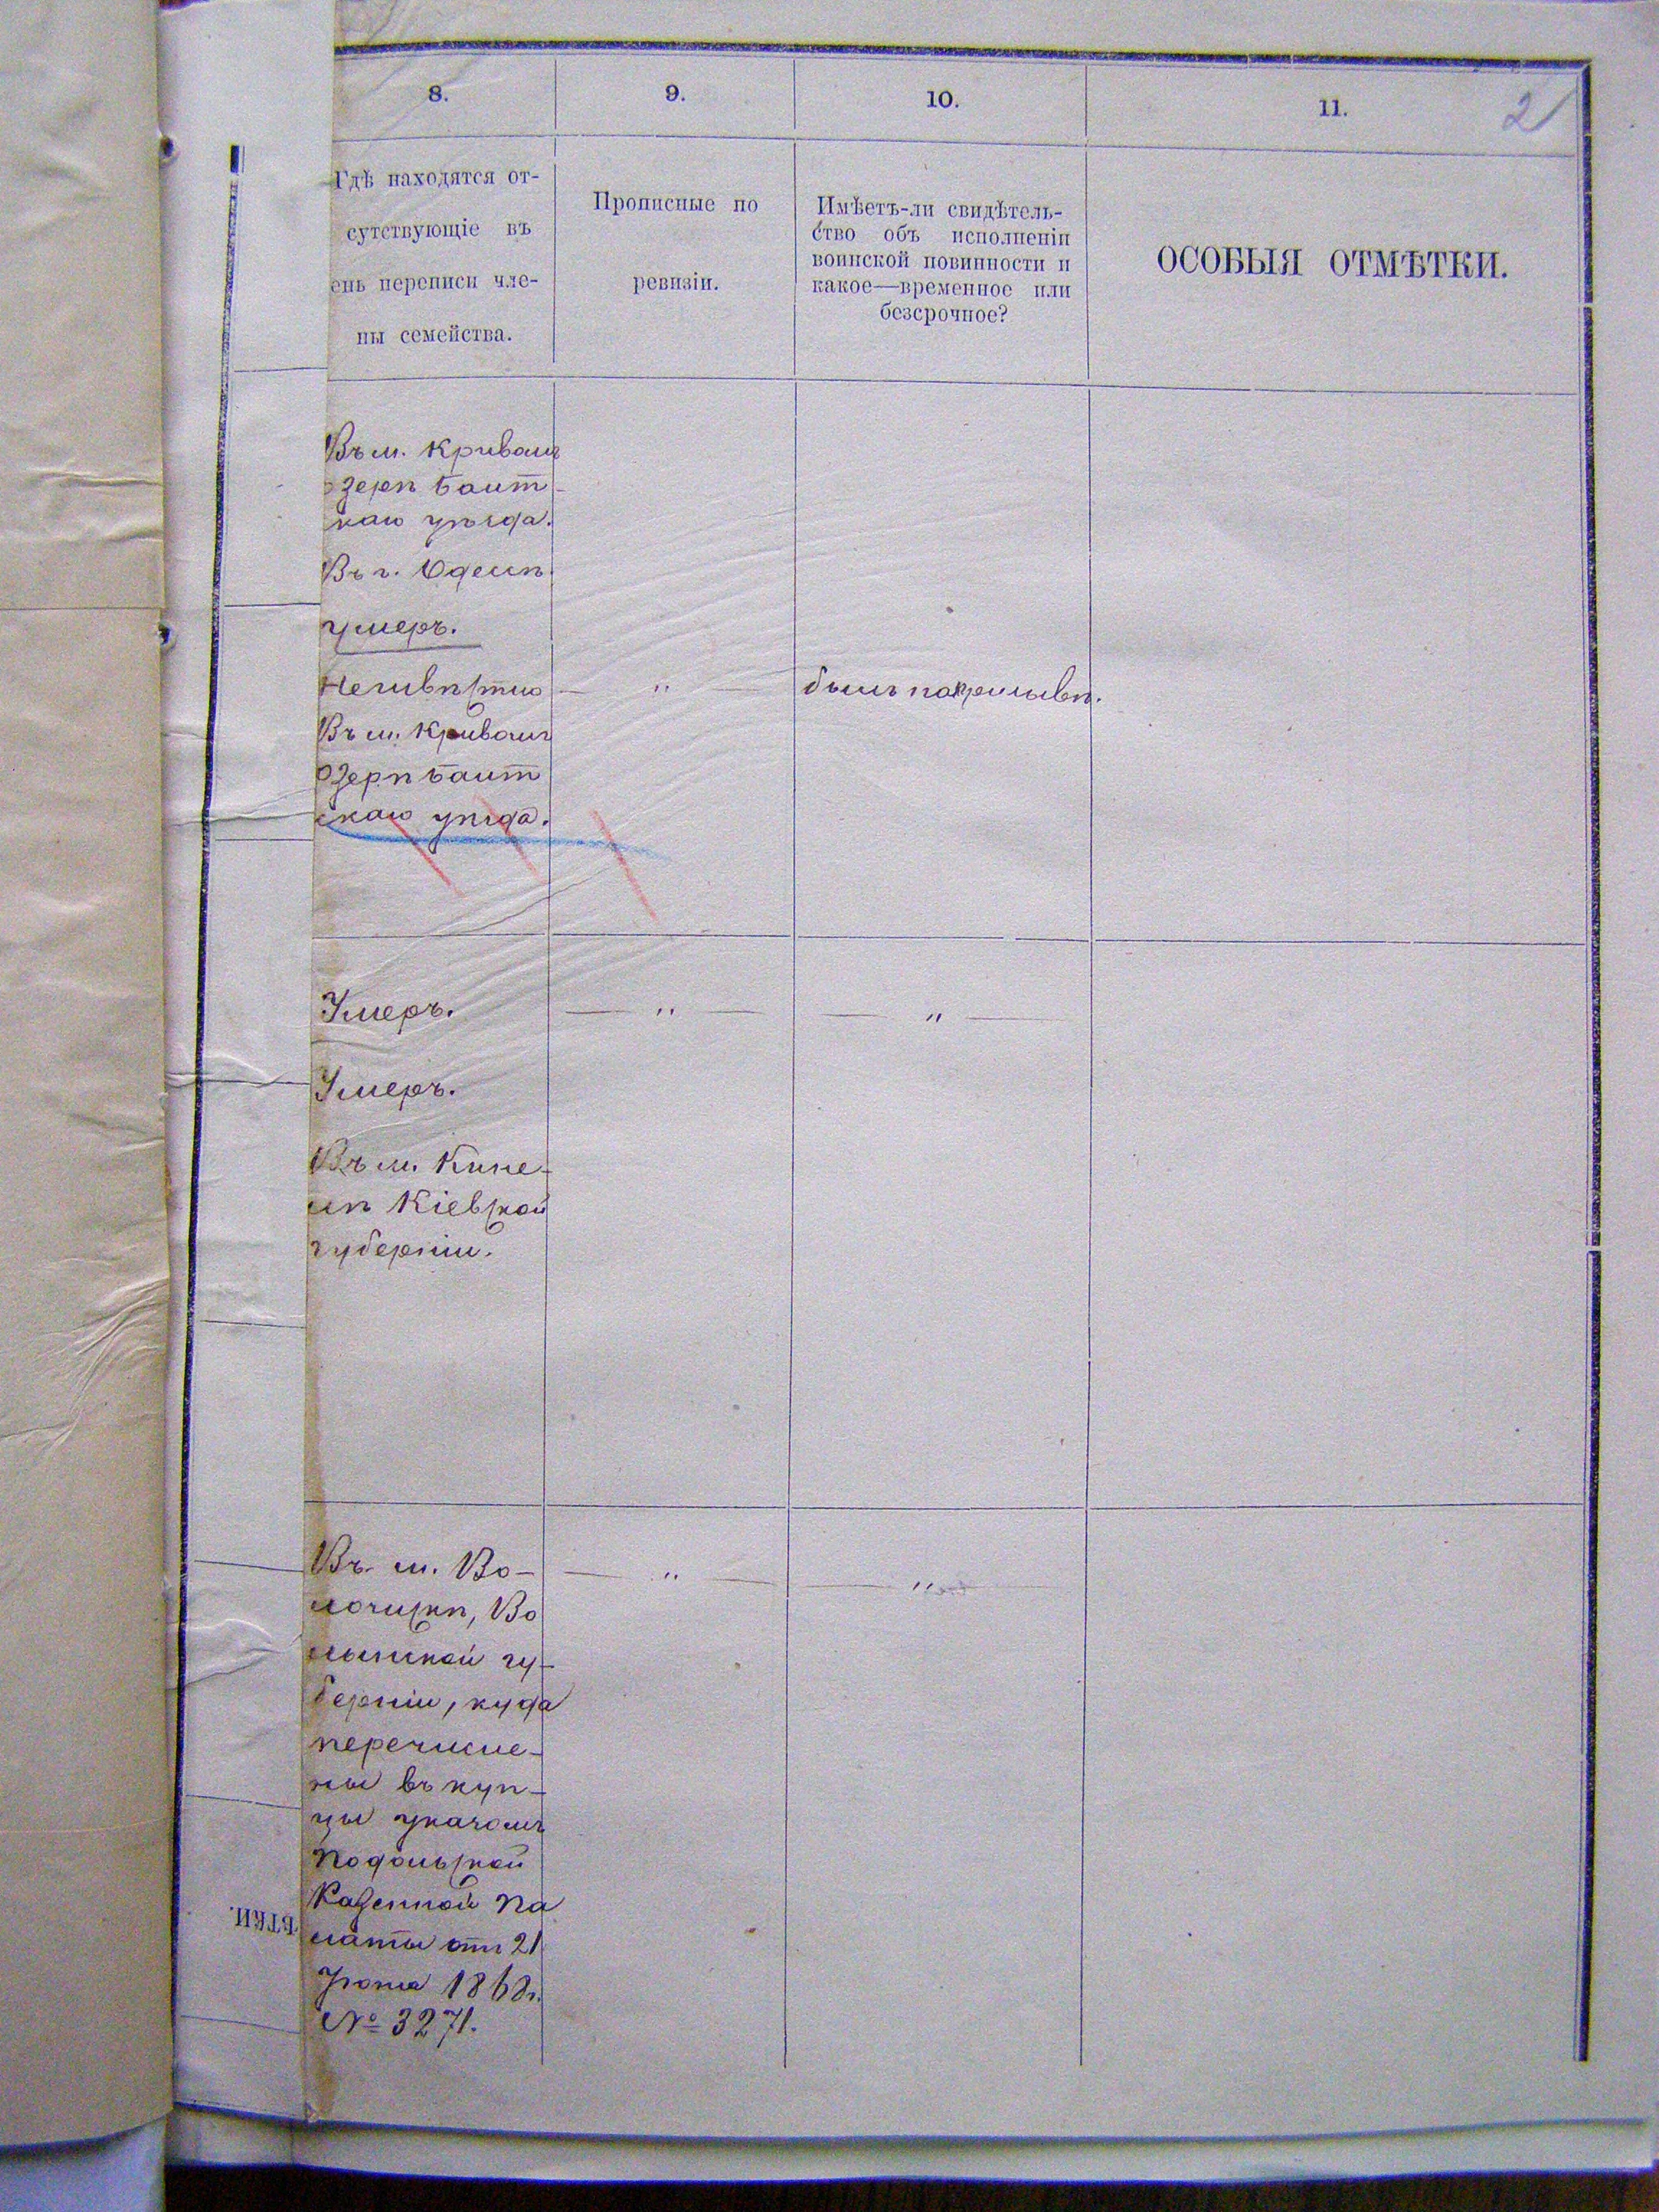 8.
9.
10.
11.
2
Гдѣ находятся от-
сутствующіе въ
ень переписи чле-
ны семейства.
Прописные по
ревизіи.
Имѣетъ-ли свидѣтель-
ство объ исполненіи
воинской повинности и
какое—временное или
безсрочное?
ОСОБЫЯ ОТМѢТКИ.
Въ м. Кривомъ
озерѣ Балт-
скаго уѣзда.
Въ г. Одессѣ
умеръ.
Неизвѣстно — " — былъ на призывѣ.
Въ м. Кривомъ
озерѣ Балт
скаго уѣзда.
Умеръ. — " — — " —
Умеръ.
Въ м.
Кіевской
губерніи.
Въ м. Во- — " — — " —
лочискѣ, Во
лынской гу-
берніи, куда
перечисле-
ны въ куп-
цы указомъ
Подольской
Казенной Па
латы отъ 21
Іюня 1868г.
№ 3271.
ѢТКИ.